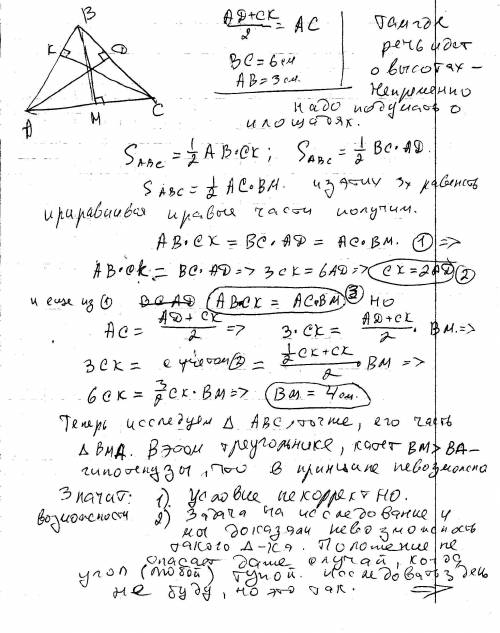 B
K
D
A
M
C
AD+CK / 2 = AC
BC = 6 см
AB = 3 см.
Там где
речь идет
о высотах –
непременно
надо подумать о
площадях.
S_ABC = 1/2 AB·CK; S_ABC = 1/2 BC·AD.
S_ABC = 1/2 AC·BM. из этих 3х равенств
приравнивая правые части получим.
AB·CK = BC·AD = AC·BM. ① =>
AB·CK = BC·AD => 3CK = 6AD => CK = 2AD ②
и еще из ① BC·AD AB·CK = AC·BM ③ но
AC = AD+CK / 2 => 3·CK = AD+CK / 2 · BM =>
3CK = с учетом ② = 1/2 CK+CK / 2 · BM =>
6CK = 3/2 CK·BM => BM = 4 см.
Теперь исследуем Δ ABC, точнее, его часть
Δ BMA. В этом треугольнике, катет BM > BA –
гипотенузы, что в принципе невозможно
Значит: 1). Условие некорректно.
возможности 2) Задача на исследование и
мы доказали невозможность
такого Δ-ка. Положение не
спасает даже случай, когда
угол (любой) тупой. исследовать здесь
не буду, но это так. =>